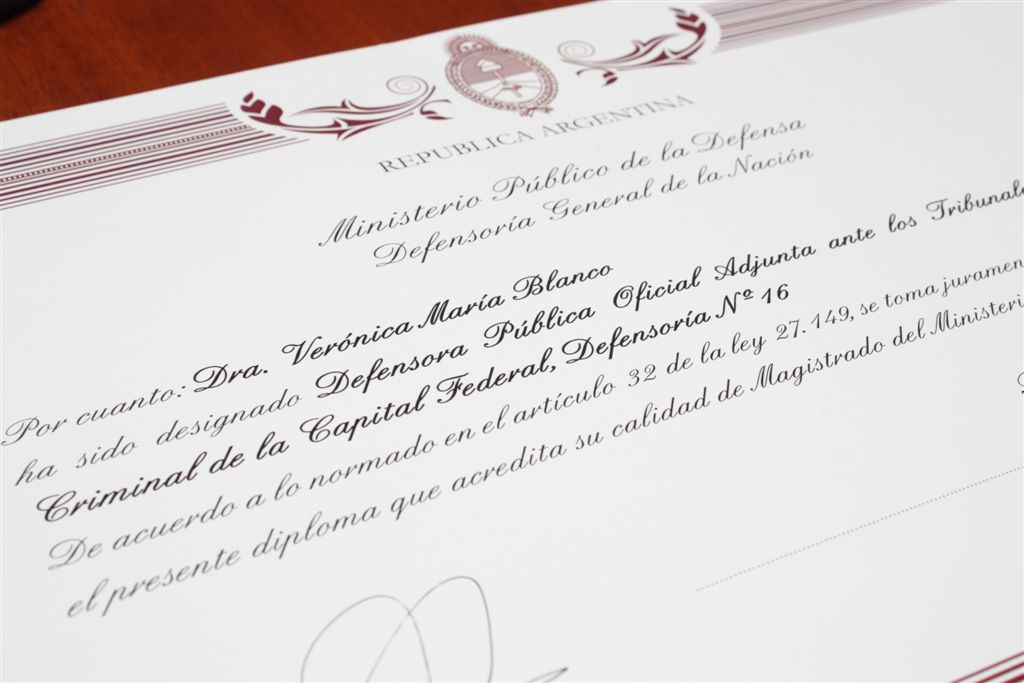 REPUBLICA ARGENTINA
Ministerio Público de la Defensa
Defensoría General de la Nación
Por cuanto: Dra. Verónica María Blanco
ha sido designado Defensora Pública Oficial Adjunta ante los
Criminal de la Capital Federal, Defensoría Nº 16
De acuerdo a lo normado en el artículo 32 de la ley 27.149, se toma
el presente diploma que acredita su calidad de Magistrado del